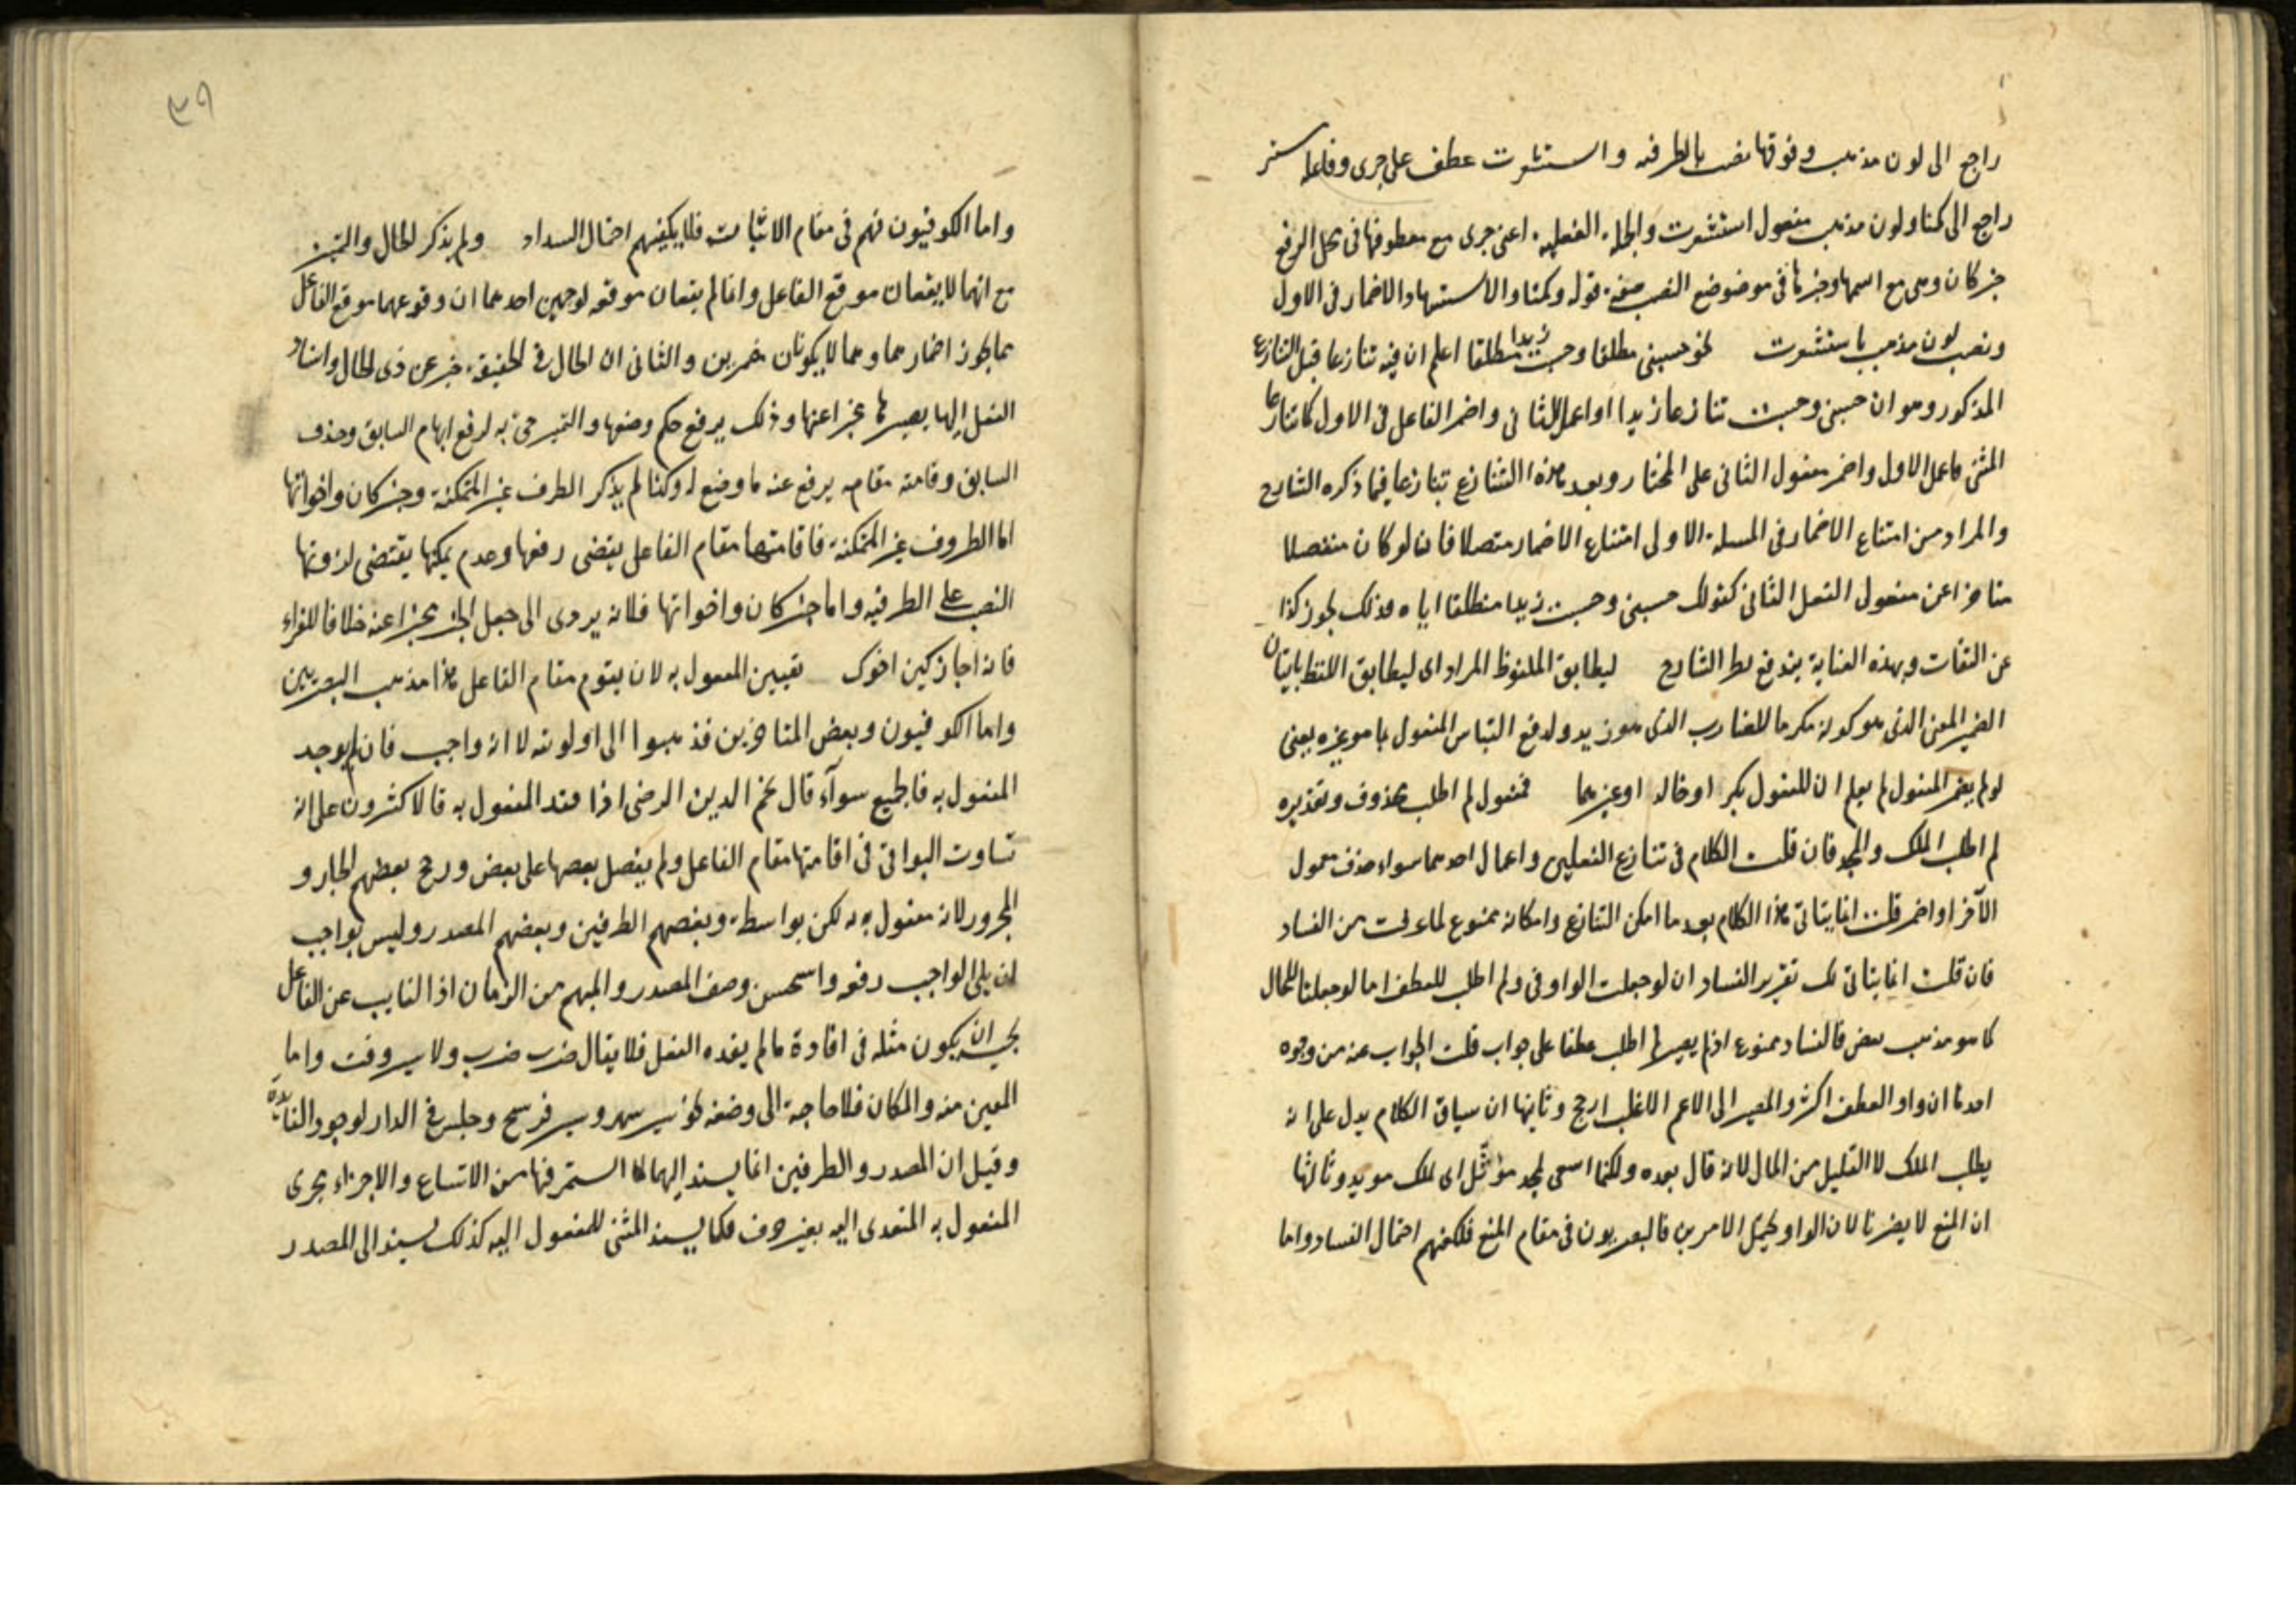 راجع الى لون مذهب وفوقها نصب بالظرفيه واستشعرت عطف على جرى وفاعله مستتر
راجع الى كمتا ولون مذهب مفعول استشعرت والجملة الفعلية اعنى جرى مع معطوفها فى محل الرفع
خبر كان وهى مع اسمها وخبرها فى موضع النصب صفة قوله وكمتا والاستشهاد الاضمار فى الاول
ونصب لون مذهب باستشعرت نحو حسبنى منطلقا وحسبت زيدا منطلقا اعلم ان فيه تنازعا قبل التنازع
المذكور وهو ان حسبنى وحسبت تنازعا زيدا اولا عمل الثانى واضمر الفاعل فى الاول كما تنازعا
المثنى فاعمل الاول واضمر مفعول الثانى على المختار وبعد هذا التنازع تنازعا فيما ذكره الشارح
والمراد من امتناع الاضمار فى المسلة الاولى امتناع الاضمار متصلا فانه لو كان منفصلا
متاخرا عن مفعول الفعل الثانى كقولك حسبنى وحسبت زيدا منطلقا اياه فذلك يجوز كذا
عن الثقات وبهذه العناية يندفع نظر الشارح ليطابق الملفوظ المراد اى ليطابق اللفظ باتيان
الضمير المعنى الذى هو كونه مكرما للضارب الذى هو زيد ولدفع التباس المفعول بما هو غيره يعنى
لو لم يضمر المفعول لم يعلم ان المفعول بكر او خالد او غيرهما فمفعول لم اطلب محذوف وتقديره
لم اطلب الملك والمجد فان قلت الكلام فى تنازع الفعلين واعمال احدهما سواء حذف معمول
الآخر او اضمر قلت انما يتاتى هذا الكلام بعد ما امكن التنازع وامكانه ممنوع لما عرفت من الفساد
فان قلت انما يتاتى لك تقرير الفساد ان لو جعلت الواو فى ولم اطلب للعطف اما لو جعلتا للحال
كما هو مذهب بعض فالفساد ممنوع اذ لم يصير لم اطلب عطفا على جواب قلت الجواب عنه من وجوه
احدها ان واو العطف اكثر والمصير الى الاعم الاغلب ارجح وثانيها ان سياق الكلام يدل على انه
يطلب الملك لا القليل من المال لانه قال بعده ولكنما اسعى لمجد مؤثّل اى لملك موبد وثالثها
ان المنع لا يضرنا لان الواو يحتمل الامرين فالبصريون فى مقام المنع فكفيهم احتمال الفساد واما
٣٩
واما الكوفيون فهم فى مقام الاثبات فلا يكفيهم احتمال السداد ولم يذكر الحال والتمييز
مع انهما لا يقعان موقع الفاعل وانما لم يقعان موقعه لوجهين احدهما ان وقوعهما موقع الفاعل
مما يجوز اضمارهما وهما لا يكونان مضمرين والثانى ان الحال فى الحقيقة خبر عن ذى الحال واسناد
الفعل اليها يصيرها مخبرا عنها وذلك يرفع حكم وضعها والتميز جئ به لرفع ابهام السابق وحذف
السابق وقامته مقامه يرفع عنه ما وضع له وكذا لم يذكر الظرف غير المتمكنة وخبر كان واخواتها
اما الظروف غير المتمكنة فاقامتها مقام الفاعل يقتضى رفعها وعدم تمكنها يقتضى لزومها
النصب على الظرفيه واما خبر كان واخواتها فلانه يودى الى جعل الخبر مخبرا عنه خلافا للفراء
فانه اجاز كين اخوك تعيين المفعول به لان يقوم مقام الفاعل هذا مذهب البصريين
واما الكوفيون وبعض المتاخرين فذهبوا الى اولويته لا انه واجب فان لم يوجد
المفعول به فالجميع سوآء قال نجم الدين الرضى اذا فقد المفعول به فالاكثرون على انه
تساوت البواقى فى اقامتها مقام الفاعل ولم يفضل بعضها على بعض ورجح بعضهم الجار و
المجرور لانه مفعول به لكن بواسطة وبعضهم الظرفين وبعضهم المصدر وليس بواجب
ان يلى الواجب رفعه واستحسن وصف المصدر والمبهم من الزمان اذ النايب عن الفاعل
يجب ان يكون مثله فى افادة ما لم يفده الفعل فلا يقال ضرب ضرب ولا سير وقت واما
المعين منه والمكان فلا حاجة الى وصفه نحو سير شهر وسير فرسخ وجلس فى الدار لوجود الفايدة
وقيل ان المصدر والظرفين انما يسند اليها لما استمر فيها من الاتساع والاجراء مجرى
المفعول به المتعدى اليه بغير حرف فكما يسند المثنى للمفعول اليه كذلك يسند الى المصدر